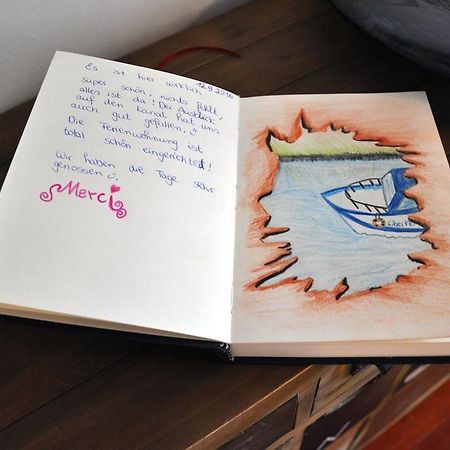 12.9.2016
Es ist hier wirklich
super schön, nichts fehlt,
alles ist da! Der Ausblick
auf den Kanal hat uns
auch gut gefallen. ☺
Die Ferienwohnung ist
total schön eingerichtet!
Wir haben die Tage sehr
genossen ☺.
Merci